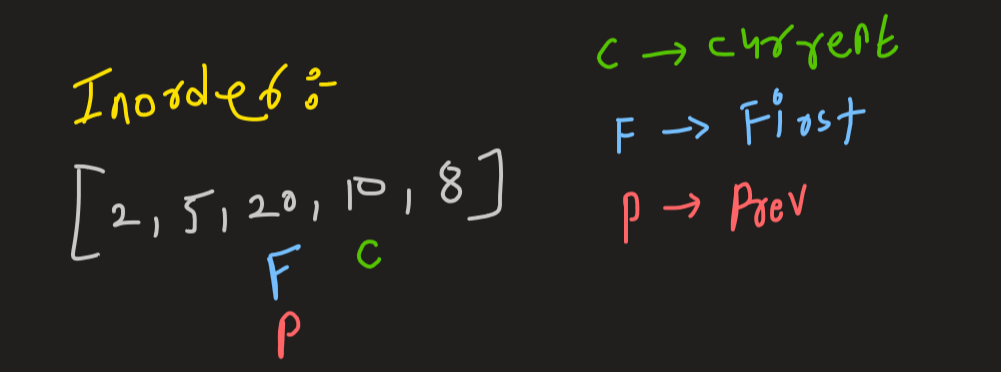 Inorder :-
[2, 5, 20, 10, 8]
F
C
P
C → current
F → First
P → Prev